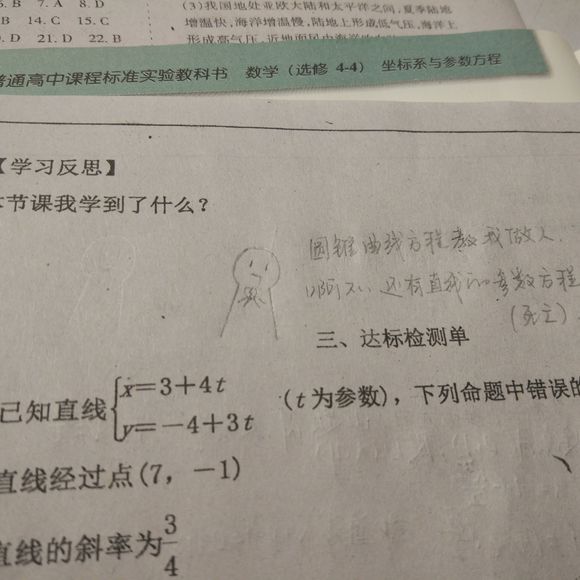 5. B 7. A 8. D
B 14. C 15. C
D 21. D 22. B
(3)我国地处亚欧大陆和太平洋之间,夏季陆地
增温快,海洋增温慢,陆地上形成低气压,海洋上
形成高气压,近地面风由海洋
普通高中课程标准实验教科书 数学(选修 4-4) 坐标系与参数方程
【学习反思】
本节课我学到了什么?
圆锥曲线方程教我做人.
啊不、还有直线的参数方程
三、达标检测单
已知直线{x=3+4t
y=-4+3t
(t为参数),下列命题中错误的
直线经过点(7,-1)
直线的斜率为3/4